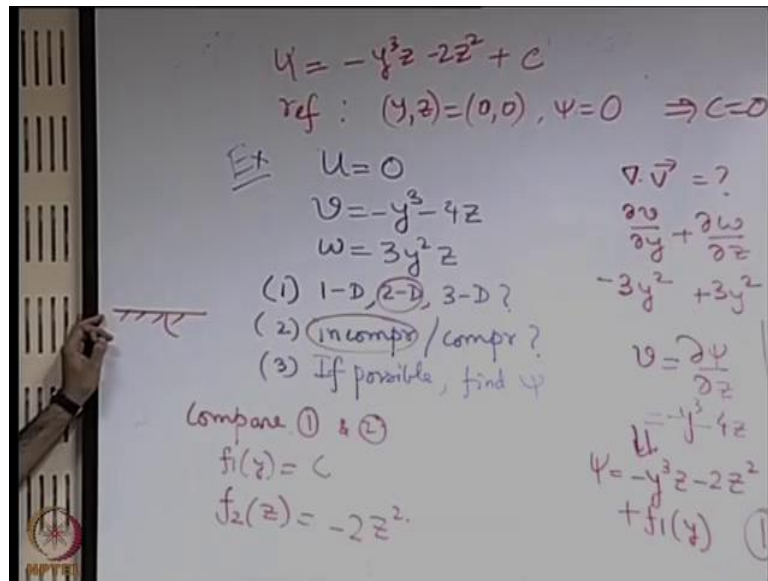 Ψ = - y³z - 2z² + C
ref : (y,z) = (0,0) , Ψ = 0 ⇒ C = 0
Ex u = 0
v = -y³ - 4z
w = 3y²z
(1) 1-D, 2-D, 3-D ?
(2) incompr / compr ?
(3) If possible, find Ψ
Compare ① & ②
f₁(y) = C
f₂(z) = -2z².
∇.V⃗ = ?
∂v/∂y + ∂w/∂z
-3y² + 3y²
v = ∂Ψ/∂z
= -y³ - 4z
⇓
Ψ = -y³z - 2z²
+ f₁(y) ①
NPTEL